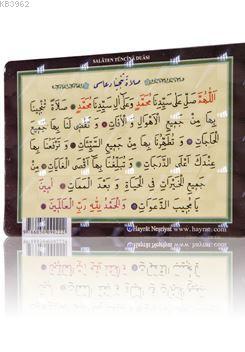 KB3962
SALÂTEN TÜNCÎNÂ DUÂSI
صلاة تنجينا دعاسى
اَللّٰهُمَّ صَلِّ عَلٰى سَيِّدِنَا مُحَمَّدٍ وَعَلٰى اٰلِ سَيِّدِنَا مُحَمَّدٍ صَلَاةً تُنْجِينَا
بِهَا مِنْ جَمِيعِ الْاَهْوَالِ وَ الْاٰفَاتِ وَ تَقْضِى لَنَا بِهَا جَمِيعَ
الْحَاجَاتِ وَ تُطَهِّرُنَا بِهَا مِنْ جَمِيعِ السَّيِّئَاتِ وَ تَرْفَعُنَا بِهَا
عِنْدَكَ اَعْلَى الدَّرَجَاتِ وَ تُبَلِّغُنَا بِهَا اَقْصَى الْغَايَاتِ مِنْ
جَمِيعِ الْخَيْرَاتِ فِى الْحَيَاةِ وَ بَعْدَ الْمَمَاتِ اٰمِينَ
يَا مُجِيبَ الدَّعَوَاتِ وَ الْحَمْدُ لِلّٰهِ رَبِّ الْعَالَمِينَ
Hayrât Neşriyat www.hayrat.com